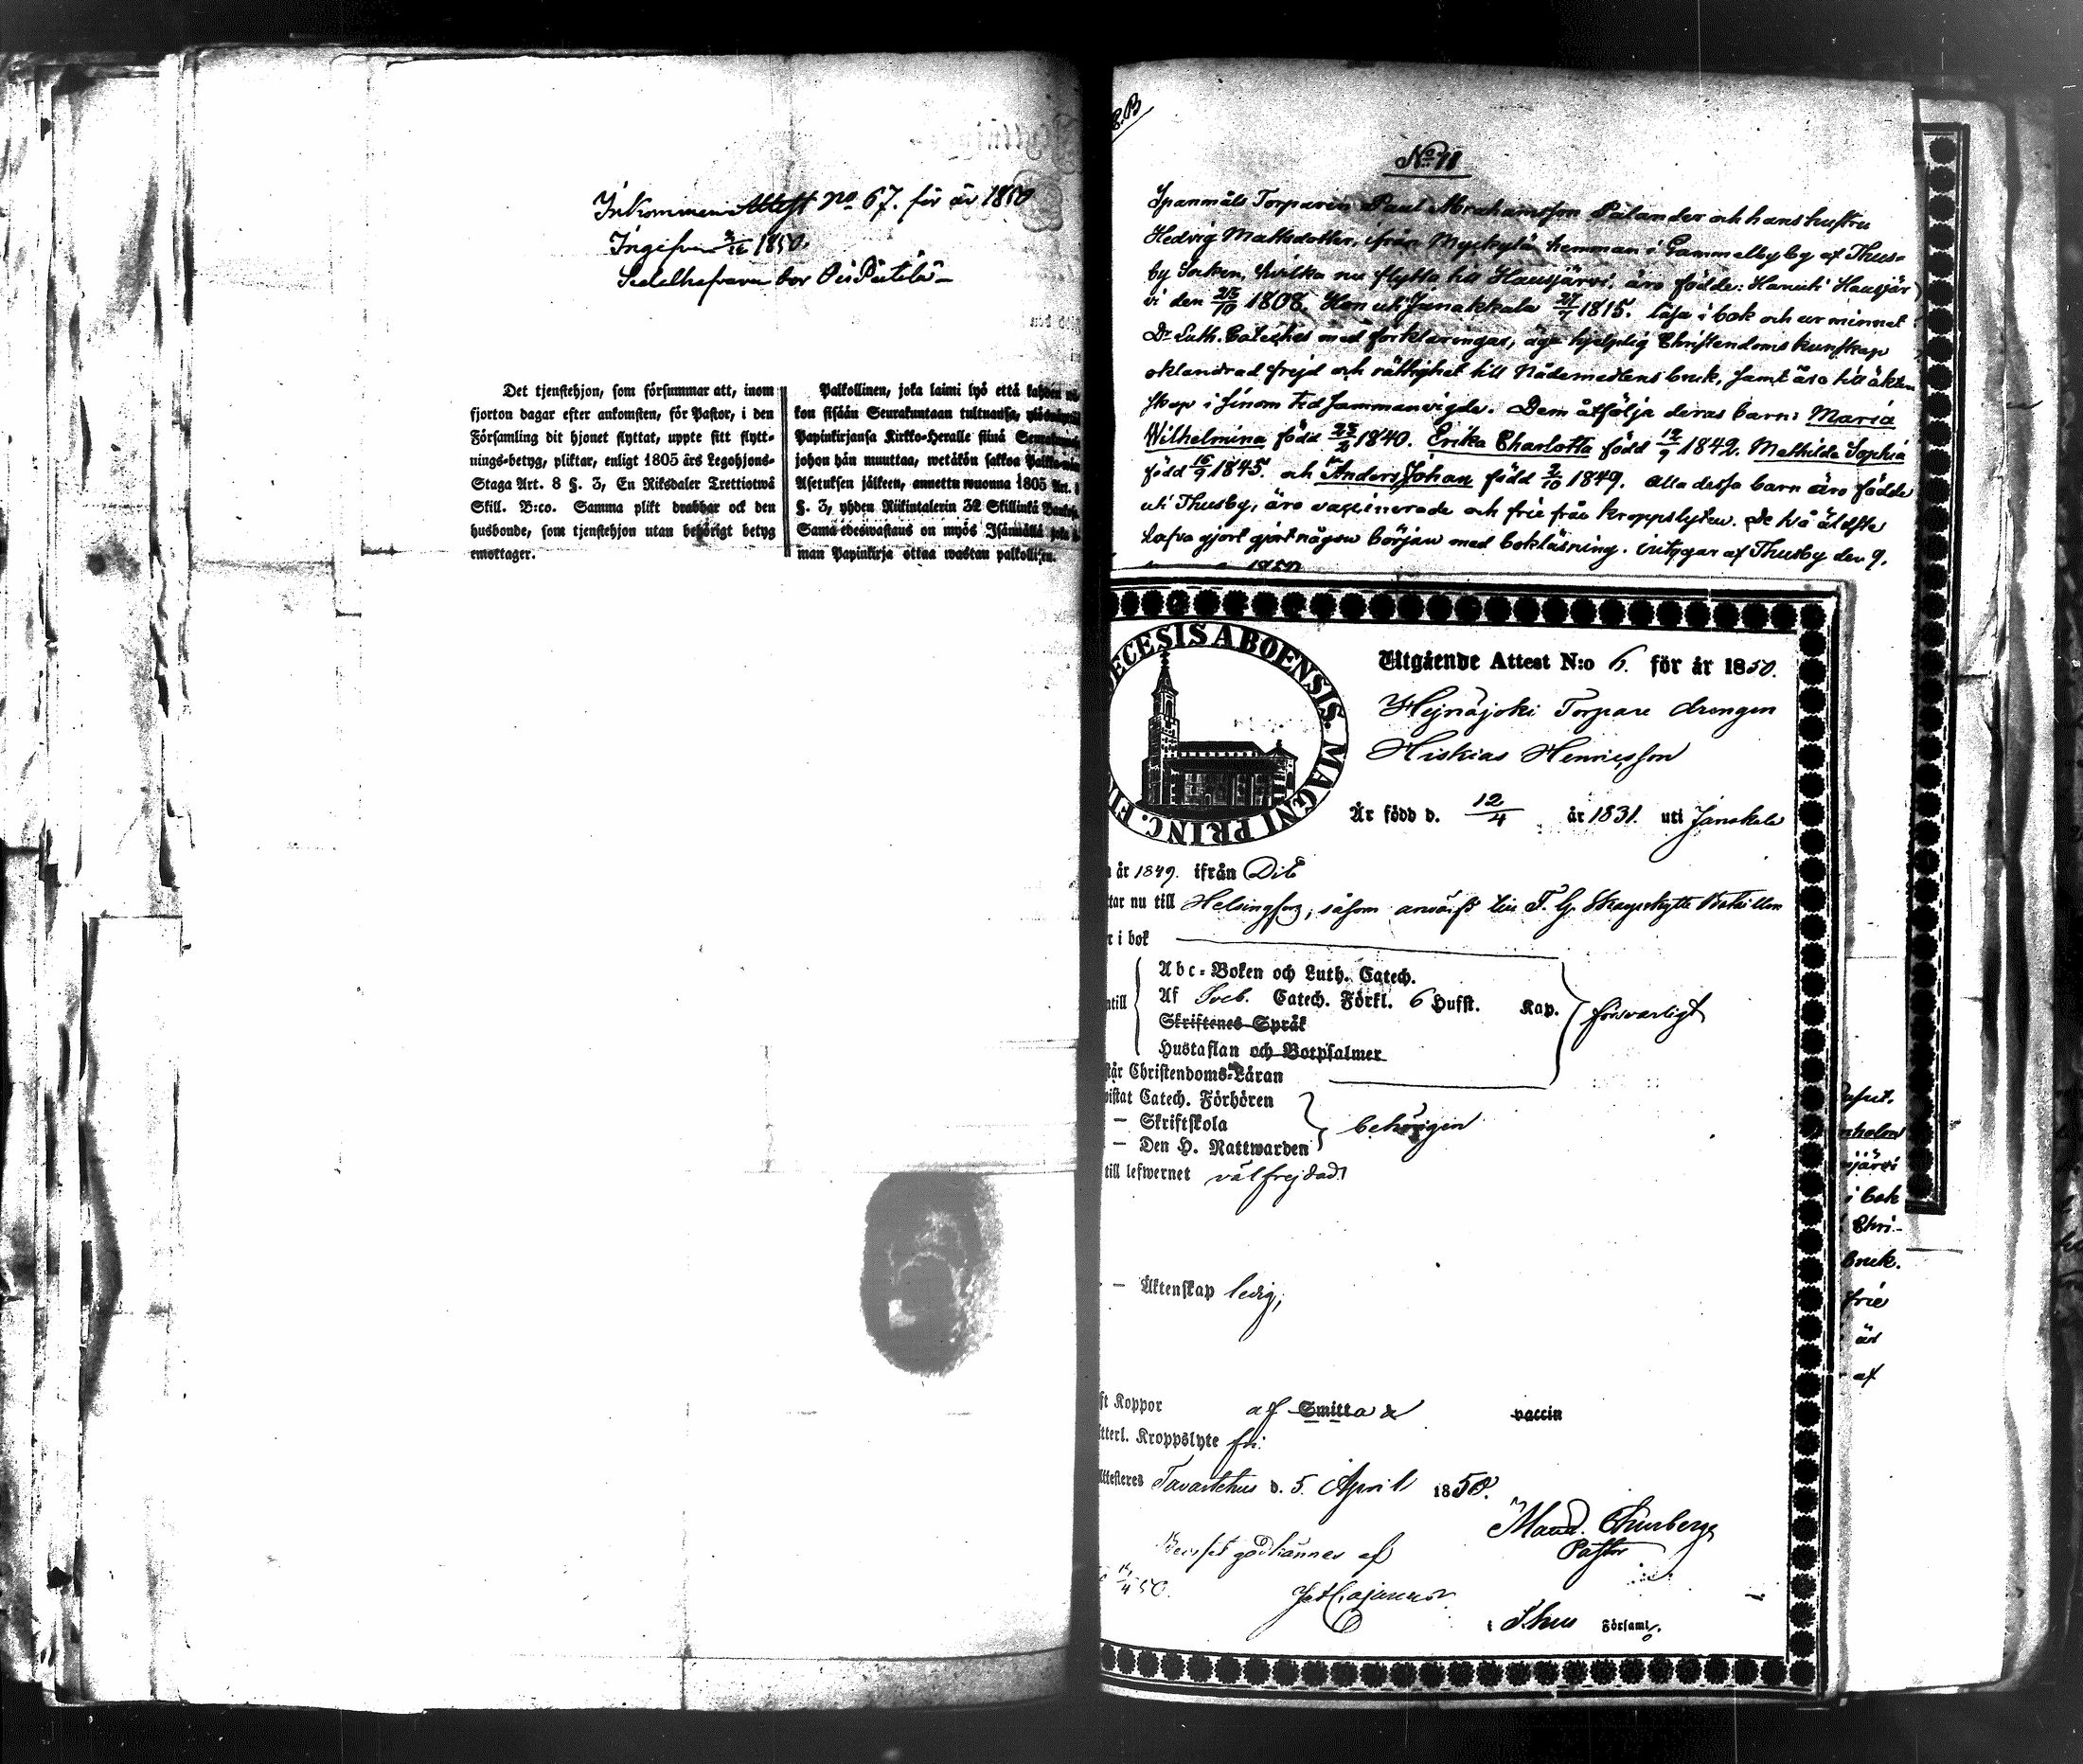 Inkommen Attest No 67. för år 1850
1850.
Det tjenstehjon, som försummar att, inom
fjorton dagar efter ankomsten, för Pastor, i den
Församling dit hjonet flyttat, uppte sitt flytt-
nings-betyg, pliktar, enligt 1805 års Legohjons-
Staga Art. 8 §. 3, En Riksdaler Trettiotwå
Skill. B:co. Samma plikt drabbar ock den
husbonde, som tjenstehjon utan behörigt betyg
emottager.
Palkollinen, joka laimi lyö että kahden
kon sisään Seurakuntaan tultuansa,
Papinkirjansa Kirkko-Heralle siinä
johon hän muuttaa, wetäkön sakkoa
Asetuksen jälkeen, annettu wuonna 1805 Art.
§. 3, yhden Riikintalerin 32 Skillinkiä
Sama edeswastaus on myös Isännällä
man Papinkirja ottaa wastan palkollisen.
No 11
Spanmåls Torparen Paul Abrahamsson Palander och hans hustru
Hedvig Mattsdotter, ifrån Myckylä hemman i Gammelby by af Thus-
by Socken, hvilka nu flytta till Hausjärvi, äro födde: Han uti Hausjär
vi den 25/10 1808. Hon uti Janakkala 27/7 1815. läsa i bok och ur minnet
Dr Luth. Cateches med förklaringar, äga hjelplig Christendoms kunskap
oklandrad frejd och rättighet till Nådemedlens bruk, samt äro till äkten
skap sinom tid sammanvigde. Dem åtfölja deras barn: Maria
Wilhelmina född 23/2 1840. Erika Charlotta född 12/9 1842. Mathilda Sophia
född 16/9 1845. och Anders Johan född 2/10 1849. Alla dessa barn äro födde
uti Thusby, äro vaccinerade och frie från kroppslyten. De två äldste
hafva gjort gjort någon början med bokläsning. intygar af Thusby den 9.
1850
DECESIS ABOENSIS. MAGNI PRINC. FI
Utgående Attest N:o 6. för år 1850.
Hejnäjoki Torpare drengen
Hiskias Henricsson
Är född d. 12/4 år 1831. uti Janakala
år 1849. ifrån Dito
tar nu till Helsingfors, såsom till F. G. Skarpskytte Bataillon
r i bok
Abc-Boken och Luth. Catech.
Af Sveb. Catech. Förkl. 6 Hufst. Kap. försvarligt
Skriftenes Språk
Hustaflan och Botpsalmer
står Christendoms-Läran
wistat Catech. Förhören
— Skriftskola behörigen
— Den H. Nattwarden
till lefwernet välfrejdad
— Äktenskap ledig,
ft Koppor af Smitta vaccin
tterl. Kroppslyte fri
Attesteres Tavastehus d. 5. April 1850.
Pastor
godkännes af
i Thus Församl.
i bok
Chri-
bruk.
frie
är
af